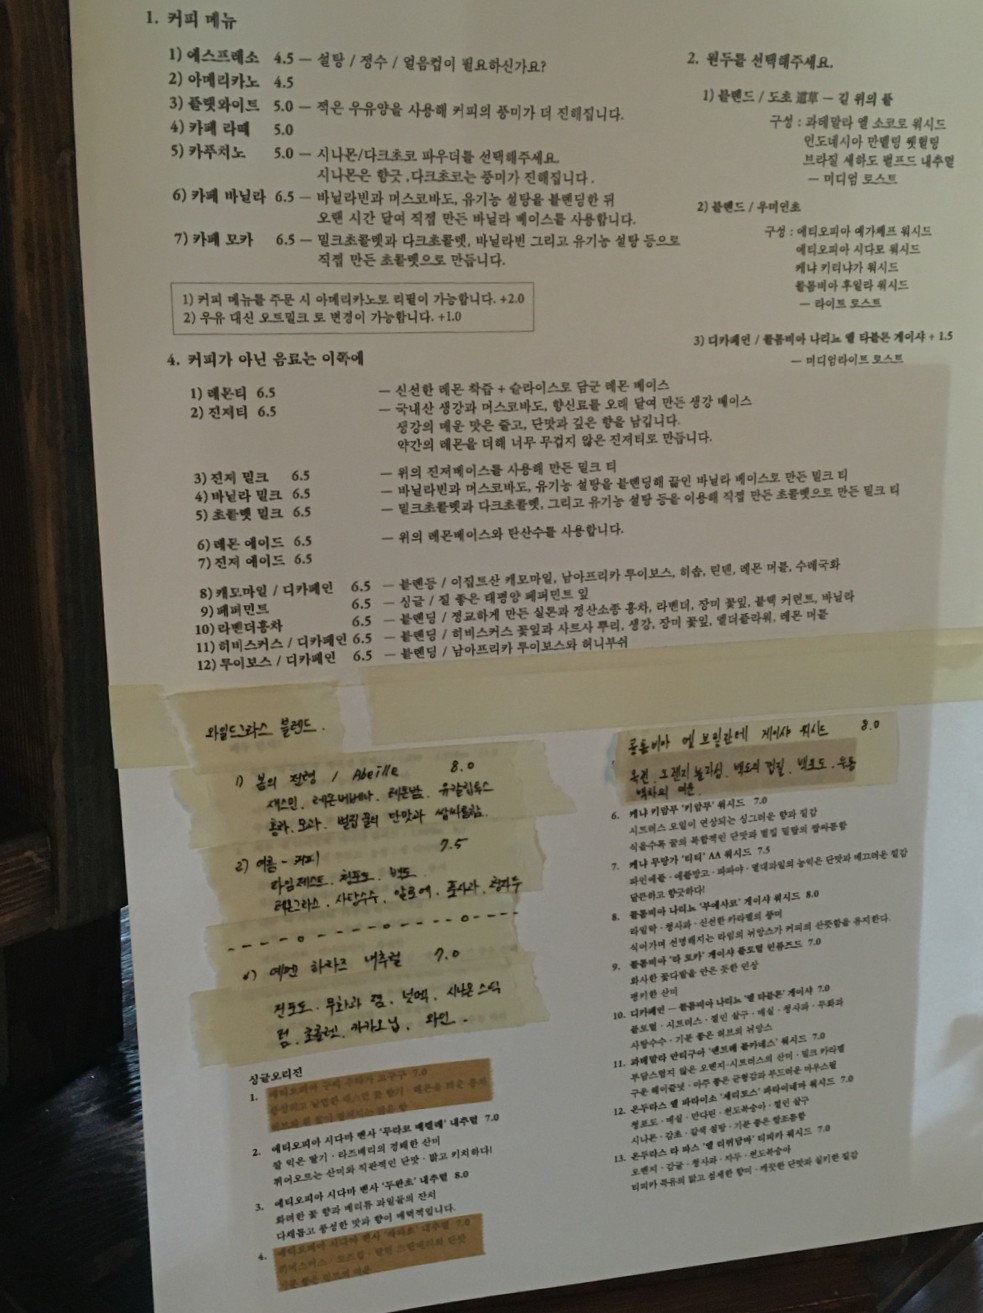 1. 커피 메뉴
1) 에스프레소 4.5 — 설탕 / 정수 / 얼음컵이 필요하신가요?
2) 아메리카노 4.5
3) 플랫와이트 5.0 — 적은 우유양을 사용해 커피의 풍미가 더 진해집니다.
4) 카페 라떼 5.0
5) 카푸치노 5.0 — 시나몬/다크초코 파우더를 선택해주세요.
시나몬은 향긋, 다크초코는 풍미가 진해집니다.
6) 카페 바닐라 6.5 — 바닐라빈과 머스코바도, 유기농 설탕을 블렌딩한 뒤
오랜 시간 달여 직접 만든 바닐라 베이스를 사용합니다.
7) 카페 모카 6.5 — 밀크초콜렛과 다크초콜렛, 바닐라빈 그리고 유기농 설탕 등으로
직접 만든 초콜렛으로 만듭니다.
1) 커피 메뉴를 주문 시 아메리카노로 리필이 가능합니다. +2.0
2) 우유 대신 오트밀크 로 변경이 가능합니다. +1.0
2. 원두를 선택해주세요.
1) 블렌드 / 도초 道草 — 길 위의 풀
구성 : 과테말라 엘 소코로 워시드
인도네시아 만델링 웻헐링
브라질 세하도 펄프드 내추럴
— 미디엄 로스트
2) 블렌드 / 우미인초
구성 : 에티오피아 예가체프 워시드
에티오피아 시다모 워시드
케냐 키리냐가 워시드
콜롬비아 후일라 워시드
— 라이트 로스트
3) 디카페인 / 콜롬비아 나리뇨 엘 타블론 게이샤 + 1.5
— 미디엄라이트 로스트
4. 커피가 아닌 음료는 이쪽에
1) 레몬티 6.5 — 신선한 레몬 착즙 + 슬라이스로 담군 레몬 베이스
2) 진저티 6.5 — 국내산 생강과 머스코바도, 향신료를 오래 달여 만든 생강 베이스
생강의 매운 맛은 줄고, 단맛과 깊은 향을 남깁니다.
약간의 레몬을 더해 너무 무겁지 않은 진저티로 만듭니다.
3) 진저 밀크 6.5 — 위의 진저베이스를 사용해 만든 밀크 티
4) 바닐라 밀크 6.5 — 바닐라빈과 머스코바도, 유기농 설탕을 블렌딩해 끓인 바닐라 베이스로 만든 밀크 티
5) 초콜렛 밀크 6.5 — 밀크초콜렛과 다크초콜렛, 그리고 유기농 설탕 등을 이용해 직접 만든 초콜렛으로 만든 밀크 티
6) 레몬 에이드 6.5 — 위의 레몬베이스와 탄산수를 사용합니다.
7) 진저 에이드 6.5
8) 캐모마일 / 디카페인 6.5 — 블렌딩 / 이집트산 캐모마일, 남아프리카 루이보스, 히솝, 린덴, 레몬 머틀, 수레국화
9) 페퍼민트 6.5 — 싱글 / 질 좋은 태평양 페퍼민트 잎
10) 라벤더홍차 6.5 — 블렌딩 / 정교하게 만든 실론과 정산소종 홍차, 라벤더, 장미 꽃잎, 블랙 커런트, 바닐라
11) 히비스커스 / 디카페인 6.5 — 블렌딩 / 히비스커스 꽃잎과 사르사 뿌리, 생강, 장미 꽃잎, 엘더플라워, 레몬 머틀
12) 루이보스 / 디카페인 6.5 — 블렌딩 / 남아프리카 루이보스와 허니부쉬
와일드그라스 블렌드.
1) 봄의 전령 / Abeille 8.0
재스민, 레몬버베나, 레몬밤, 유칼립투스
홍차, 모과, 벌집꿀의 단맛과 쌉싸름함.
2) 여름 - 커피 7.5
라임제스트, 청포도, 백도
레몬그라스, 사탕수수, 알로에, 풋사과, 청자두
예멘 하라즈 내추럴 7.0
건포도, 무화과 잼, 넛멕, 시나몬스틱
럼, 초콜렛, 카카오닙, 와인.
싱글오리진
1.
2. 에티오피아 시다마 벤사 '무라고 베켈레' 내추럴 7.0
잘 익은 딸기 · 라즈베리의 경쾌한 산미
튀어오르는 산미와 직관적인 단맛 · 맑고 키치하다!
3. 에티오피아 시다마 벤사 '두완초' 내추럴 8.0
화려한 꽃 향과 베리류 과일들의 잔치
다채롭고 풍성한 맛과 향이 매력적입니다.
4.
콜롬비아 엘 보밀란테 게이샤 워시드 8.0
백차의 여운.
6. 케냐 키암부 '키암부' 워시드 7.0
시트러스 오일이 연상되는 싱그러운 향과 질감
식을수록 꿀의 복합적인 단맛과 벌집 밀랍의 쌉싸름함
7. 케냐 무랑가 '티티' AA 워시드 7.5
파인애플 · 애플망고 · 파파야 · 열대과일의 농익은 단맛과 매끄러운 질감
달큰하고 향긋하다!
8. 콜롬비아 나리뇨 '부에사코' 게이샤 워시드 8.0
라일락 · 청사과 · 신선한 카라멜의 풍미
식어가며 선명해지는 라임의 뉘앙스가 커피의 산뜻함을 유지한다.
9. 콜롬비아 '라 로카' 게이샤 플로럴 인퓨즈드 7.0
화사한 꽃다발을 안은 듯한 인상
펑키한 산미
10. 디카페인 — 콜롬비아 나리뇨 '엘 타블론' 게이샤 7.0
플로럴 · 시트러스 · 절인 살구 · 매실 · 청사과 · 무화과
사탕수수 · 기분 좋은 허브의 뉘앙스
11. 과테말라 안티구아 '엔트레 볼카네스' 워시드 7.0
부담스럽지 않은 오렌지·시트러스의 산미 · 밀크 카라멜
구운 헤이즐넛 · 아주 좋은 균형감과 부드러운 마우스필
12. 온두라스 엘 파라이소 '세리토스' 파라이네마 워시드 7.0
청포도 · 매실 · 만다린 · 천도복숭아 · 절인 살구
시나몬 · 감초 · 갈색 설탕 · 기분 좋은 향조롭함
13. 온두라스 라 파스 '엘 리퀴담바' 티피카 워시드 7.0
오렌지 · 감귤 · 청사과 · 자두 · 천도복숭아
티피카 특유의 맑고 섬세한 향미 · 깨끗한 단맛과 실키한 질감